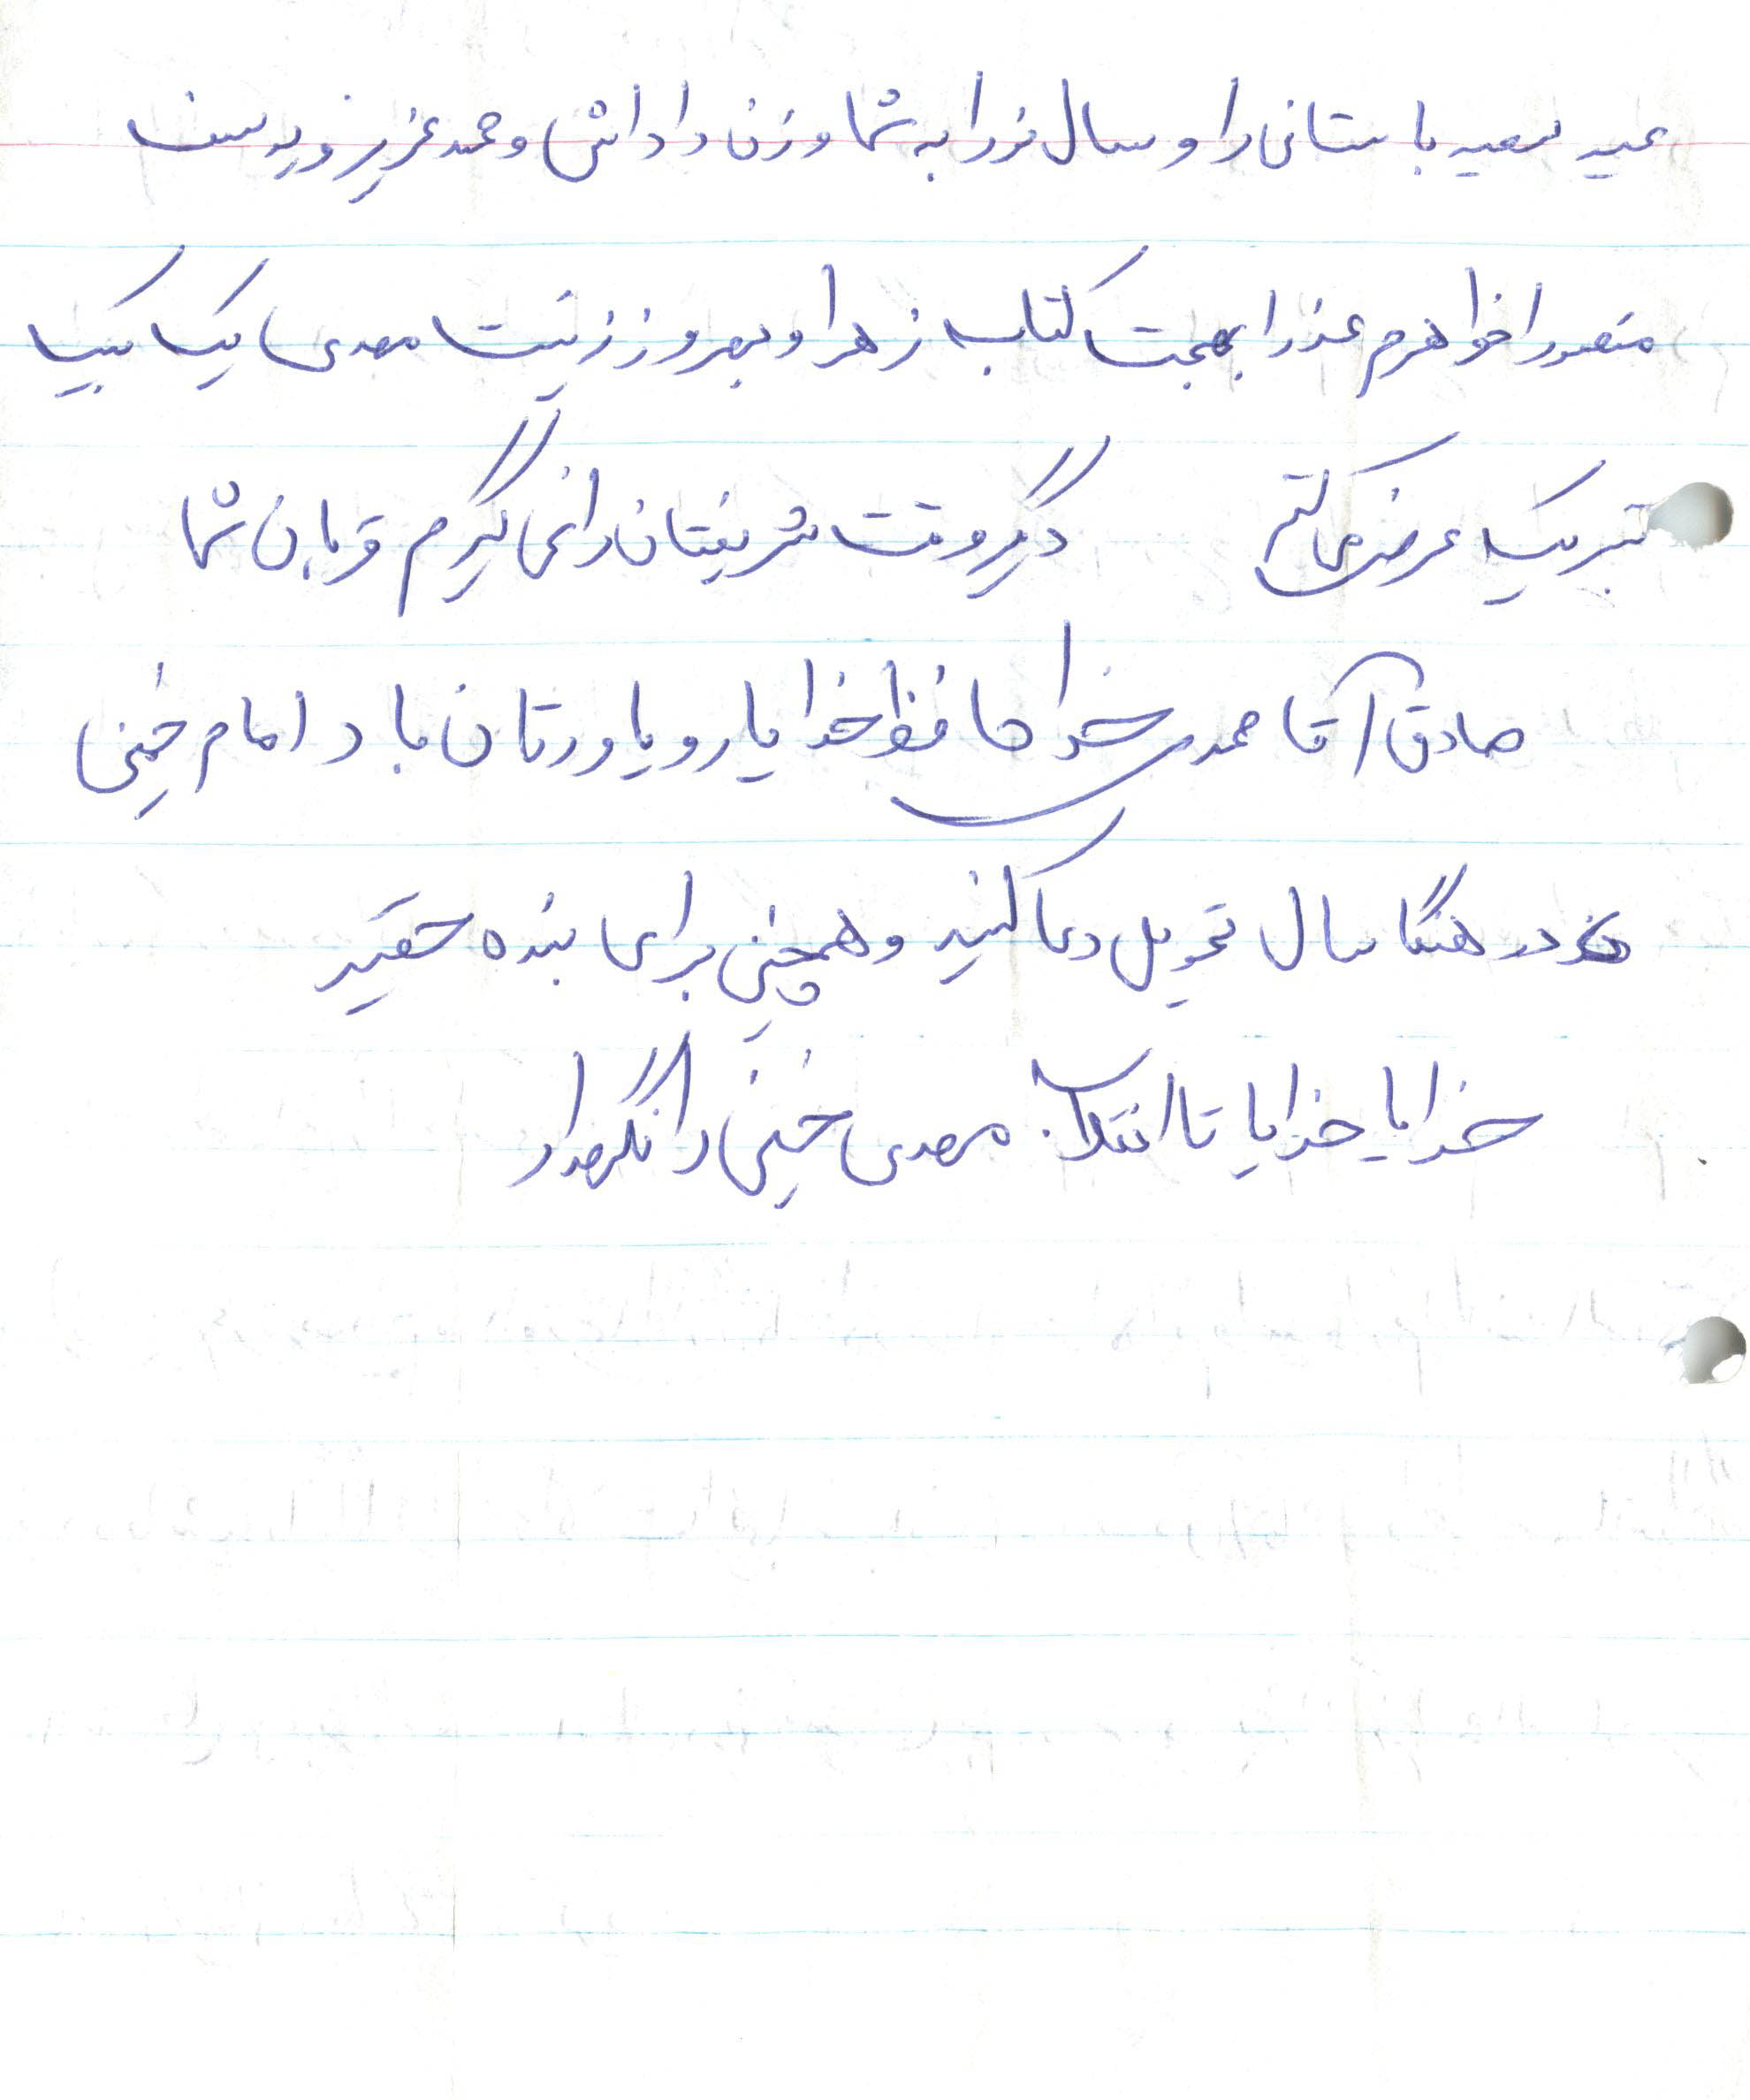 عید سعید باستانی را و سال نو را به شما و زن داداش و محمد عزیز و یوسف
منصور خواهرم عذرا بهجت کتاب زهرا و بهروز زینت مهدی یک یک
تبریک عرض می‌کنم دگر وقت شریفتان را نمی‌گیرم قربان شما
صادق آقا محمدی خدا حافظ خدا یار و یاورتان باد امام خمینی
در هنگا سال تحویل دعا کنید و همچنین برای بنده حقیر
خدایا خدایا تا انقلاب مهدی خمینی را نگهدار